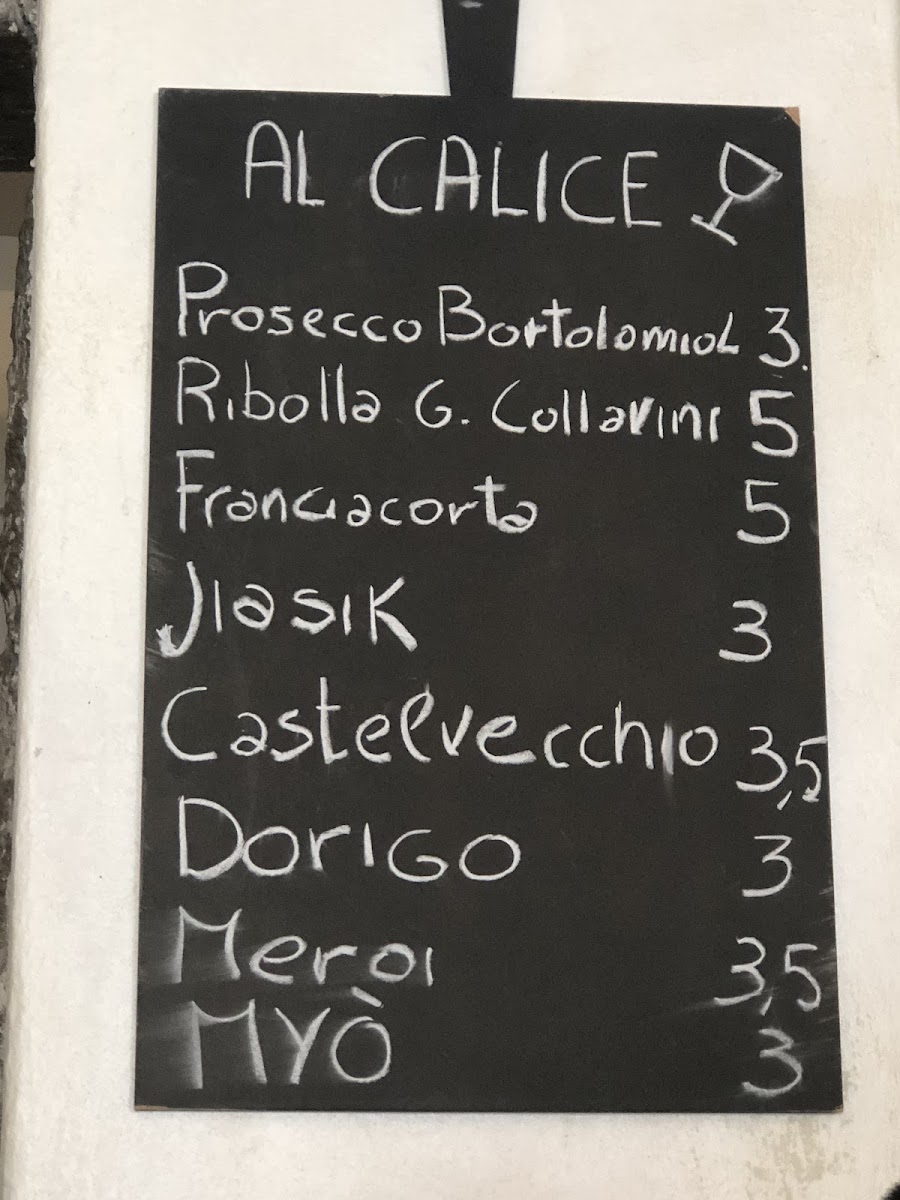 AL CALICE
Prosecco Bortolomiol 3.
Ribolla G. Collavini 5
Franciacorta 5
Jiasik 3
Castelvecchio 3,5
Dorigo 3
Meroi 3,5
MYÒ 3